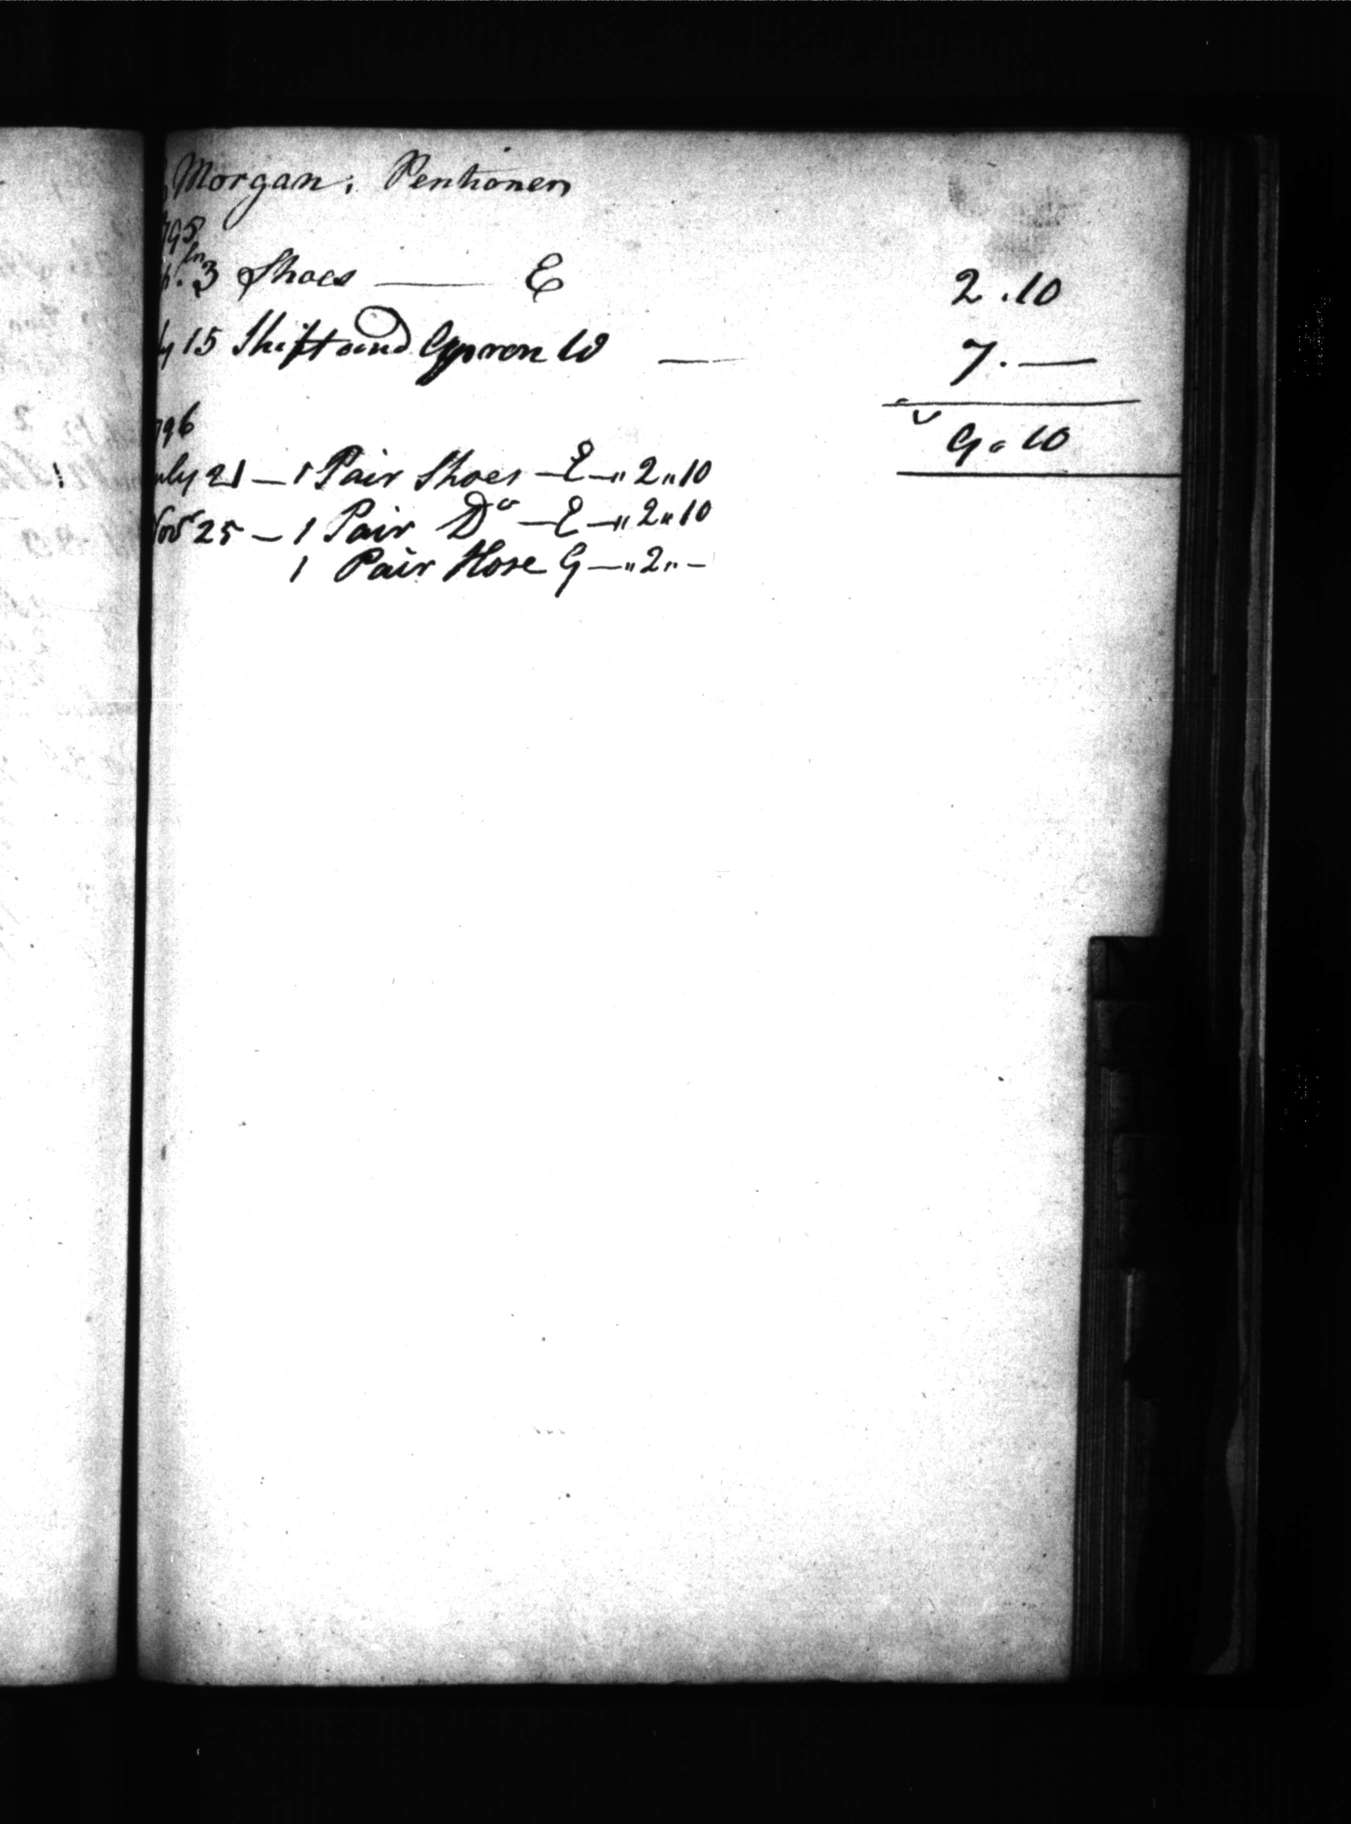 Morgan, Pentioner
795
3 Shoes — E 2.10
15 Shift and Apron W — 7.—
9.10
796
uly 21 — 1 Pair Shoes — E — „ 2 „ 10
Novr 25 — 1 Pair Do — E — „ 2 „ 10
1 Pair Hose G — „ 2 „ —